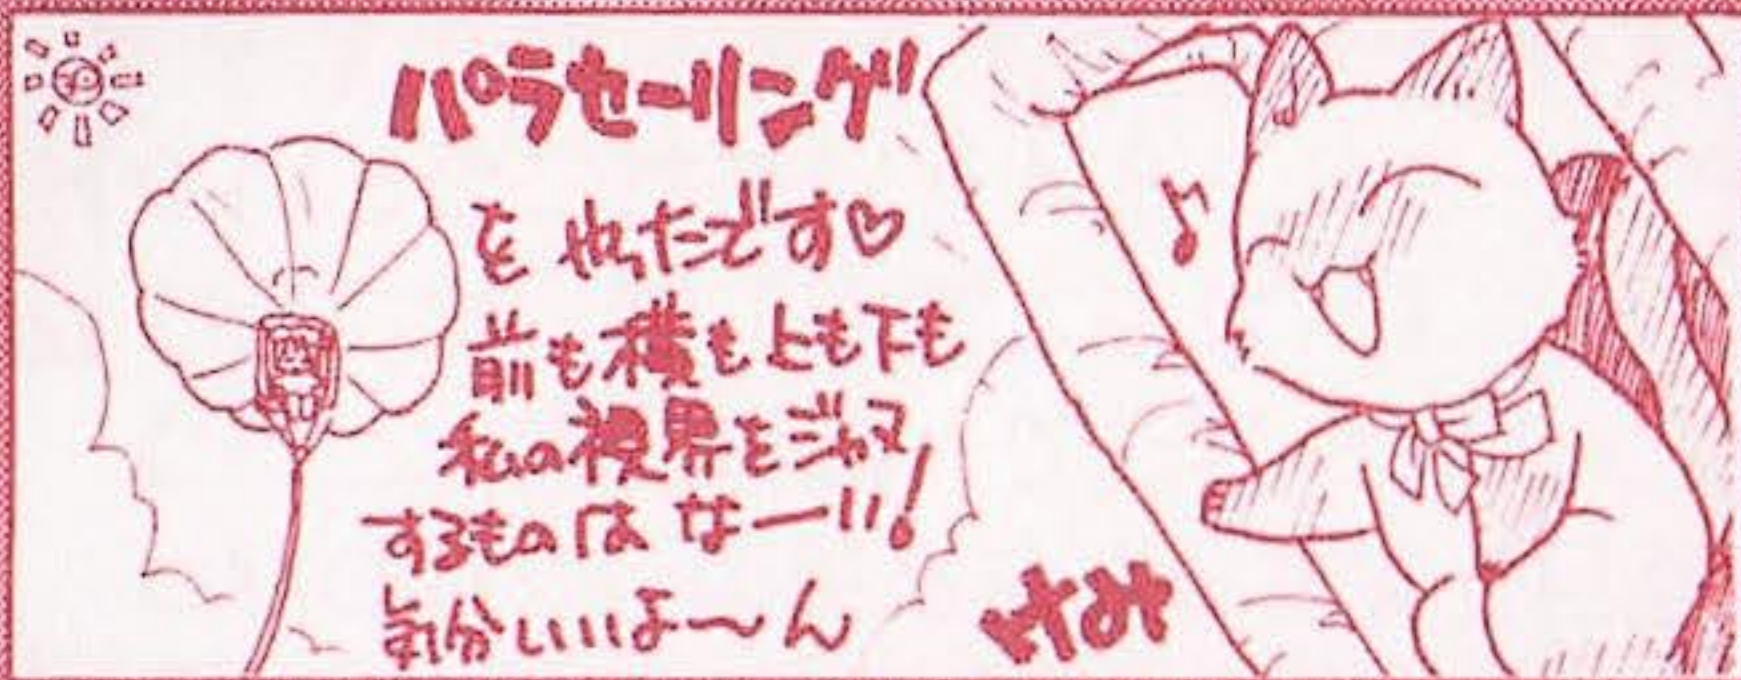 パラセーリング
をやったです♡
前も横も上も下も
私の視界をジャマ
するものはなーい!
気分いいよ〜ん
けみ